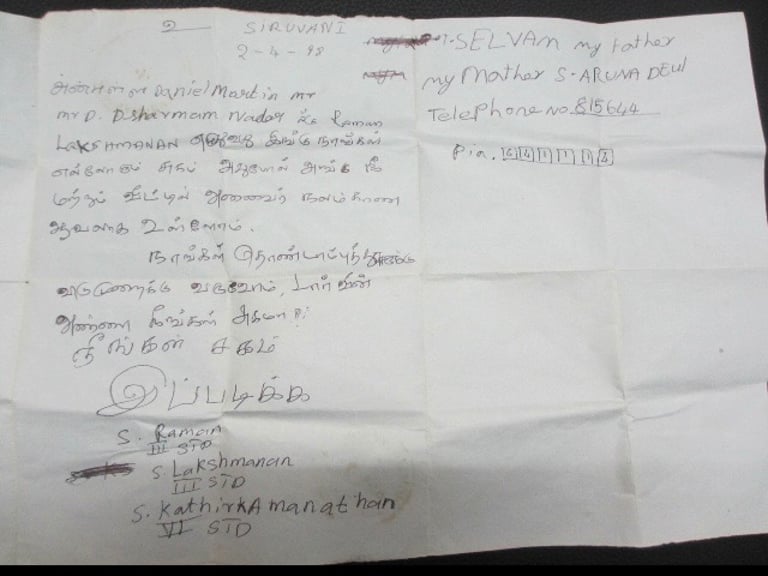 உ SIRUVANI
2-4-98
அன்புள்ள Daniel Martin mr
mr D. Dsharmam Nadar Raman
LAKSHMANAN எழுதுவது இங்கு நாங்கள்
எல்லோரும் சுகம் அதுபோல் அங்கு நீ
மற்றும் வீட்டில் அனைவர் நலம் காண
ஆவலாக உள்ளோம்.
நாங்கள்
வருவோம், டார்வின்
அண்ணா நீங்கள் சுகமா?
நீங்கள் சுகம்
இப்படிக்கு
S. Raman
III STD
S. Lakshmanan
III STD
S. KathirkAmanathan
VI STD
T. SELVAM my Father
my Mother S. ARUNA DEVI
Telephone No. 815644
Pin.